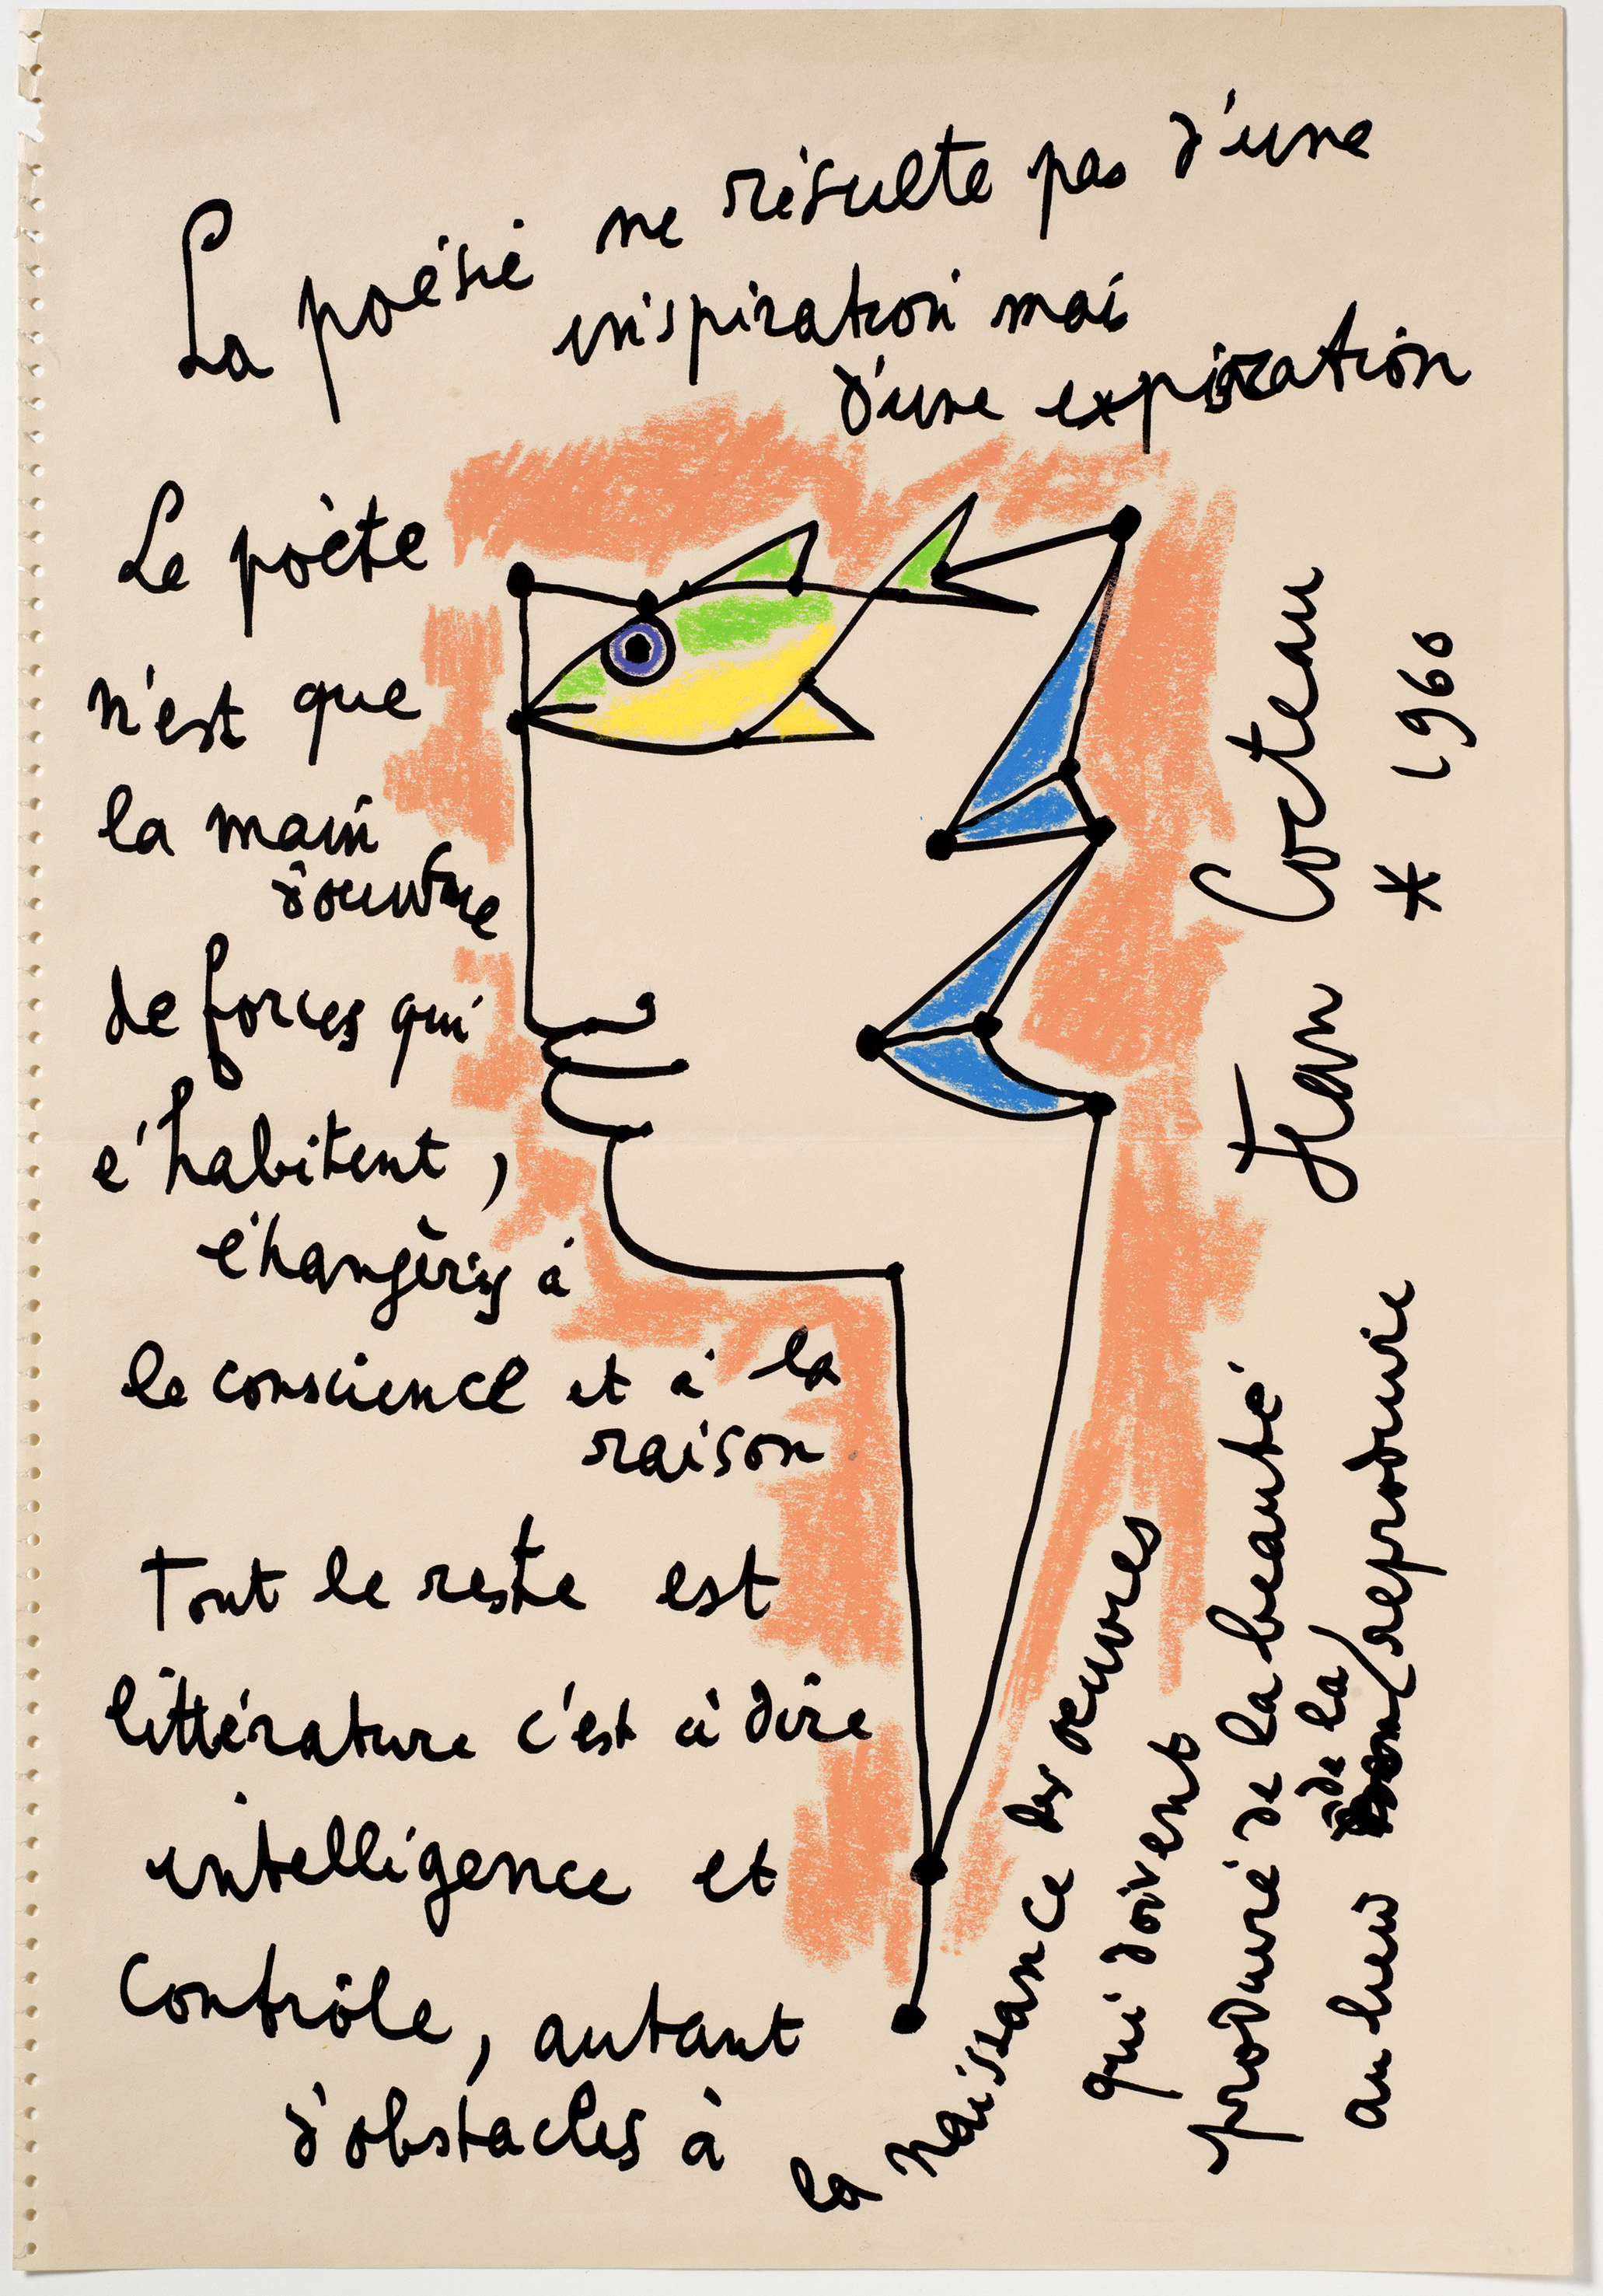 La poésie ne résulte pas d'une
inspiration mais
d'une expiration
Le poète
n'est que
la main
d'œuvre
de forces qui
l'habitent,
étrangères à
la conscience et à la
raison
Tout le reste est
littérature c'est à dire
intelligence et
contrôle, autant
d'obstacles à
la naissance des œuvres
qui doivent
produire de la beauté
au lieu de la reproduire
Jean Cocteau
* 1960